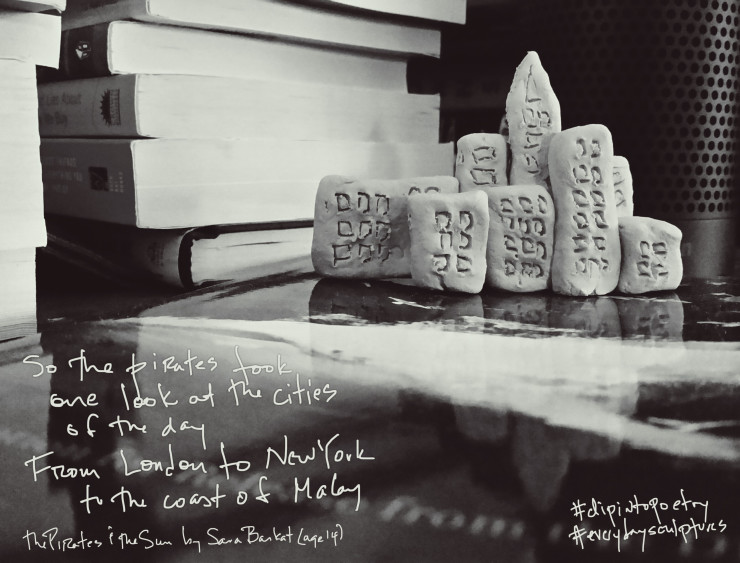 So the pirates took
one look at the cities
of the day
From London to New York
to the coast of Malay
the Pirates & the Sun by Sara Barkat (age 14)
#dipintopoetry
#everydaysculptures